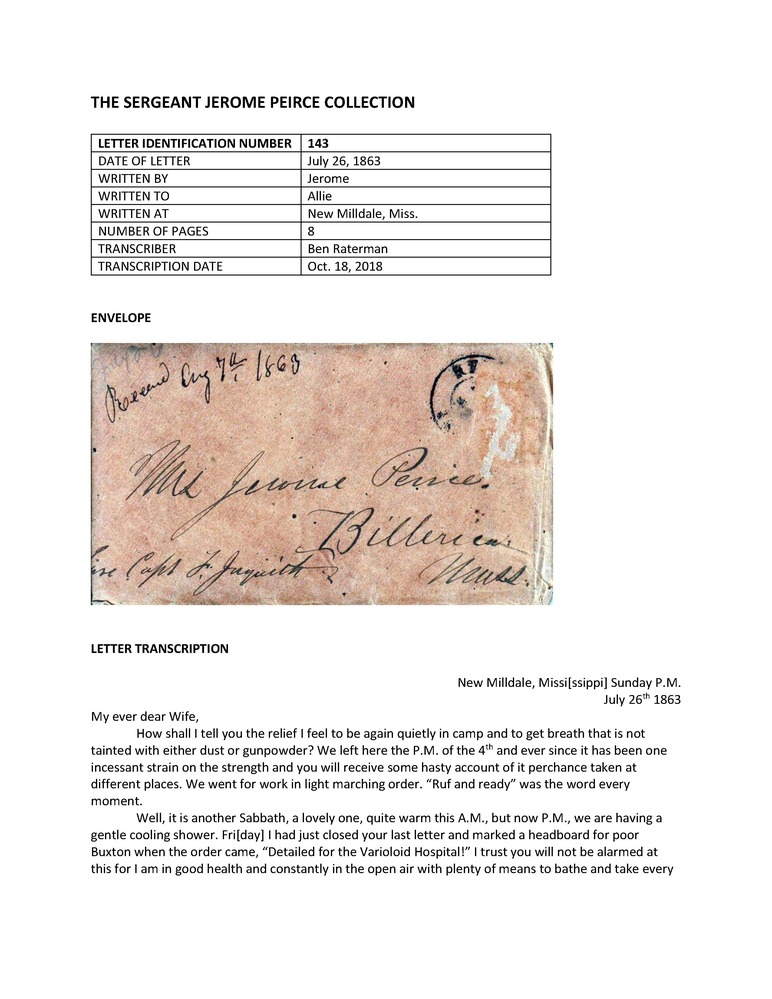 THE SERGEANT JEROME PEIRCE COLLECTION
LETTER IDENTIFICATION NUMBER 143
DATE OF LETTER July 26, 1863
WRITTEN BY Jerome
WRITTEN TO Allie
WRITTEN AT New Milldale, Miss.
NUMBER OF PAGES 8
TRANSCRIBER Ben Raterman
TRANSCRIPTION DATE Oct. 18, 2018
ENVELOPE
Aug 7th 1863
Mrs Jerome Peirce.
Billerica
Capt F. Jaquith
Mass.
LETTER TRANSCRIPTION
New Milldale, Missi[ssippi] Sunday P.M.
July 26th 1863
My ever dear Wife,
How shall I tell you the relief I feel to be again quietly in camp and to get breath that is not
tainted with either dust or gunpowder? We left here the P.M. of the 4th and ever since it has been one
incessant strain on the strength and you will receive some hasty account of it perchance taken at
different places. We went for work in light marching order. “Ruf and ready” was the word every
moment.
Well, it is another Sabbath, a lovely one, quite warm this A.M., but now P.M., we are having a
gentle cooling shower. Fri[day] I had just closed your last letter and marked a headboard for poor
Buxton when the order came, “Detailed for the Varioloid Hospital!” I trust you will not be alarmed at
this for I am in good health and constantly in the open air with plenty of means to bathe and take every